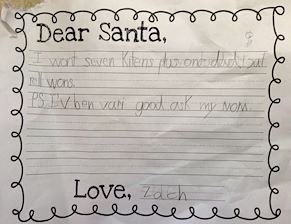 Dear Santa,
I wont seven Kitens plus one
wons.
PS. Ev ben vari good ask my mom.
Love, Zach